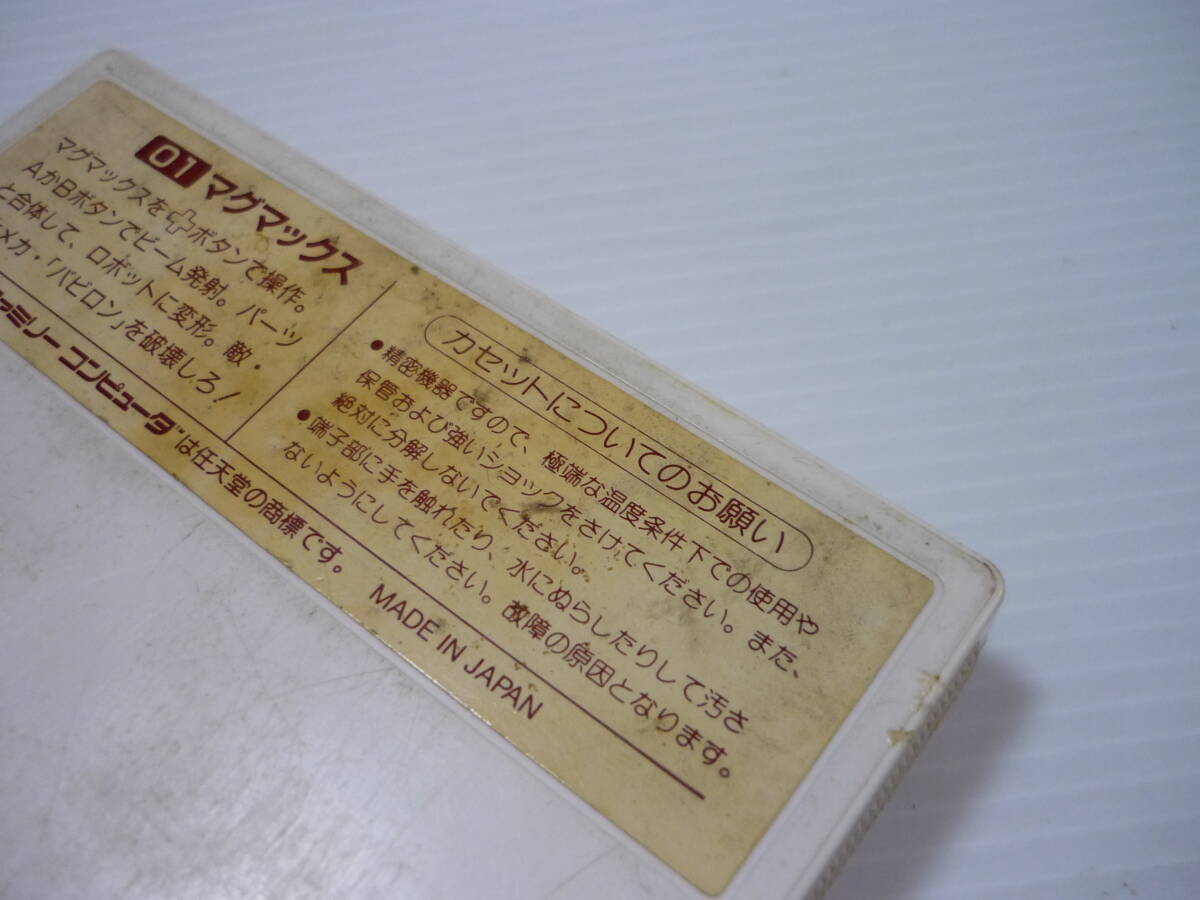 01 マグマックス
マグマックスを✚ボタンで操作。
AかBボタンでビーム発射。パーツ
と合体して、ロボットに変形。敵・
メカ・「バビロン」を破壊しろ!
カセットについてのお願い
●精密機器ですので、極端な温度条件下での使用や
保管および強いショックをさけてください。また、
絶対に分解しないでください。
●端子部に手を触れたり、水にぬらしたりして汚さ
ないようにしてください。故障の原因となります。
ファミリーコンピュータ™は任天堂の商標です。 MADE IN JAPAN